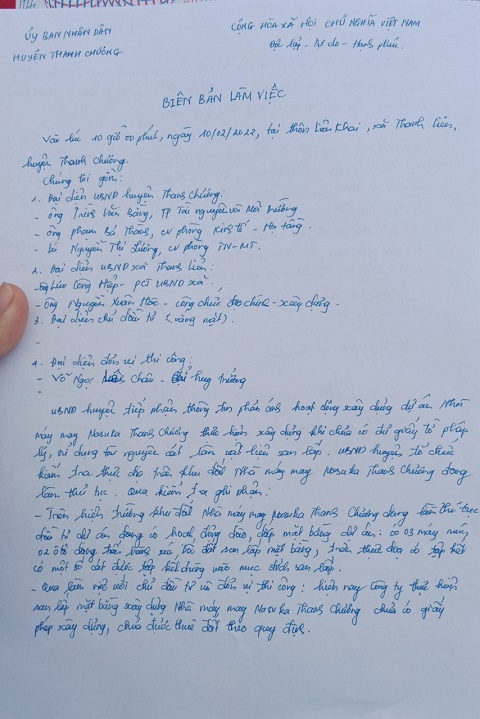 ỦY BAN NHÂN DÂN
HUYỆN THANH CHƯƠNG
CỘNG HÒA XÃ HỘI CHỦ NGHĨA VIỆT NAM
Độc lập - Tự do - Hạnh phúc.
BIÊN BẢN LÀM VIỆC
Vào lúc 10 giờ 00 phút, ngày 10/02/2022, tại thôn Liên Khai, xã Thanh Liên,
huyện Thanh Chương.
Chúng tôi gồm:
1. Đại diện UBND huyện Thanh Chương:
- Ông Trình Văn Bằng, TP Tài nguyên và Môi trường
- Ông Phạm Bá Thái, CV phòng Kinh tế - Hạ tầng.
- Bà Nguyễn Thị Lương, CV phòng TN-MT.
2. Đại diện UBND xã Thanh Liên:
- Ông Công Hiệp - PCT UBND xã,
- Ông Nguyễn Xuân - công chức địa chính - xây dựng.
3. Đại diện chủ đầu tư (vắng mặt).
-
4. Đại diện đơn vị thi công:
- Võ Ngọc Châu - Chỉ huy trưởng
UBND huyện tiếp nhận thông tin phản ánh hoạt động xây dựng dự án Nhà
máy may Nasuka Thanh Chương thực hiện xây dựng khi chưa có đủ giấy tờ pháp
lý, sử dụng tài nguyên cát làm vật liệu san lấp. UBND huyện tổ chức
kiểm tra thực địa trên khu đất Nhà máy may Nasuka Thanh Chương đang
làm thủ tục. Qua kiểm tra ghi nhận:
- Trên hiện trường khu đất Nhà máy may Nasuka Thanh Chương đang làm thủ tục
đầu tư dự án đang có hoạt động đào, đắp mặt bằng dự án: có 03 máy múc,
02 ô tô đang vận xúc, tải đất san lấp mặt bằng, thực địa có tập kết
có một số cát được tập kết dùng vào mục đích san lấp.
- Qua làm việc với chủ đầu tư và đơn vị thi công: hiện nay Công ty thực hiện
san lấp mặt bằng xây dựng Nhà máy may Nasuka Thanh Chương chưa có giấy
phép xây dựng, chưa được thuê đất theo quy định.